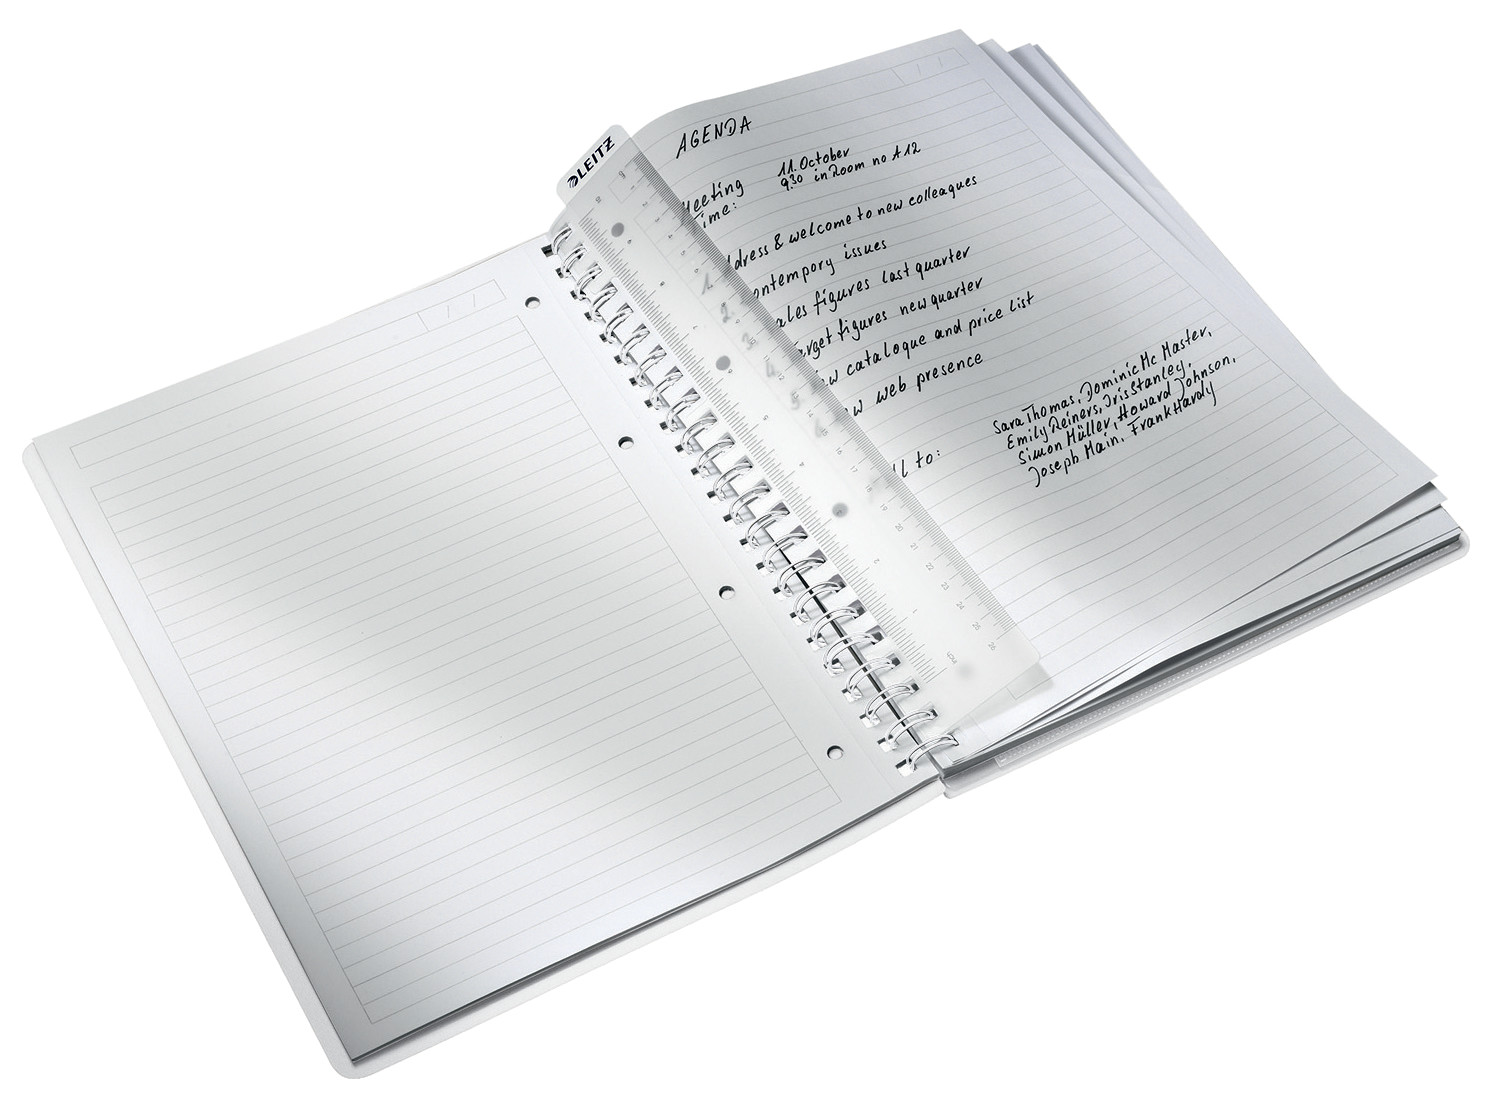 LEITZ
AGENDA
Meeting 11. October
Time: 9.30 in Room no A 12
1. dress & welcome to new colleagues
2. ontempory issues
3. ales figures last quarter
4. arget figures new quarter
5. ew catalogue and price list
6. ew web presence
ll to: Sara Thomas, Dominic Mc Master,
Emily Reiners, Iris Stanley,
Simon Müller, Howard Johnson,
Joseph Main, Frank Hardy